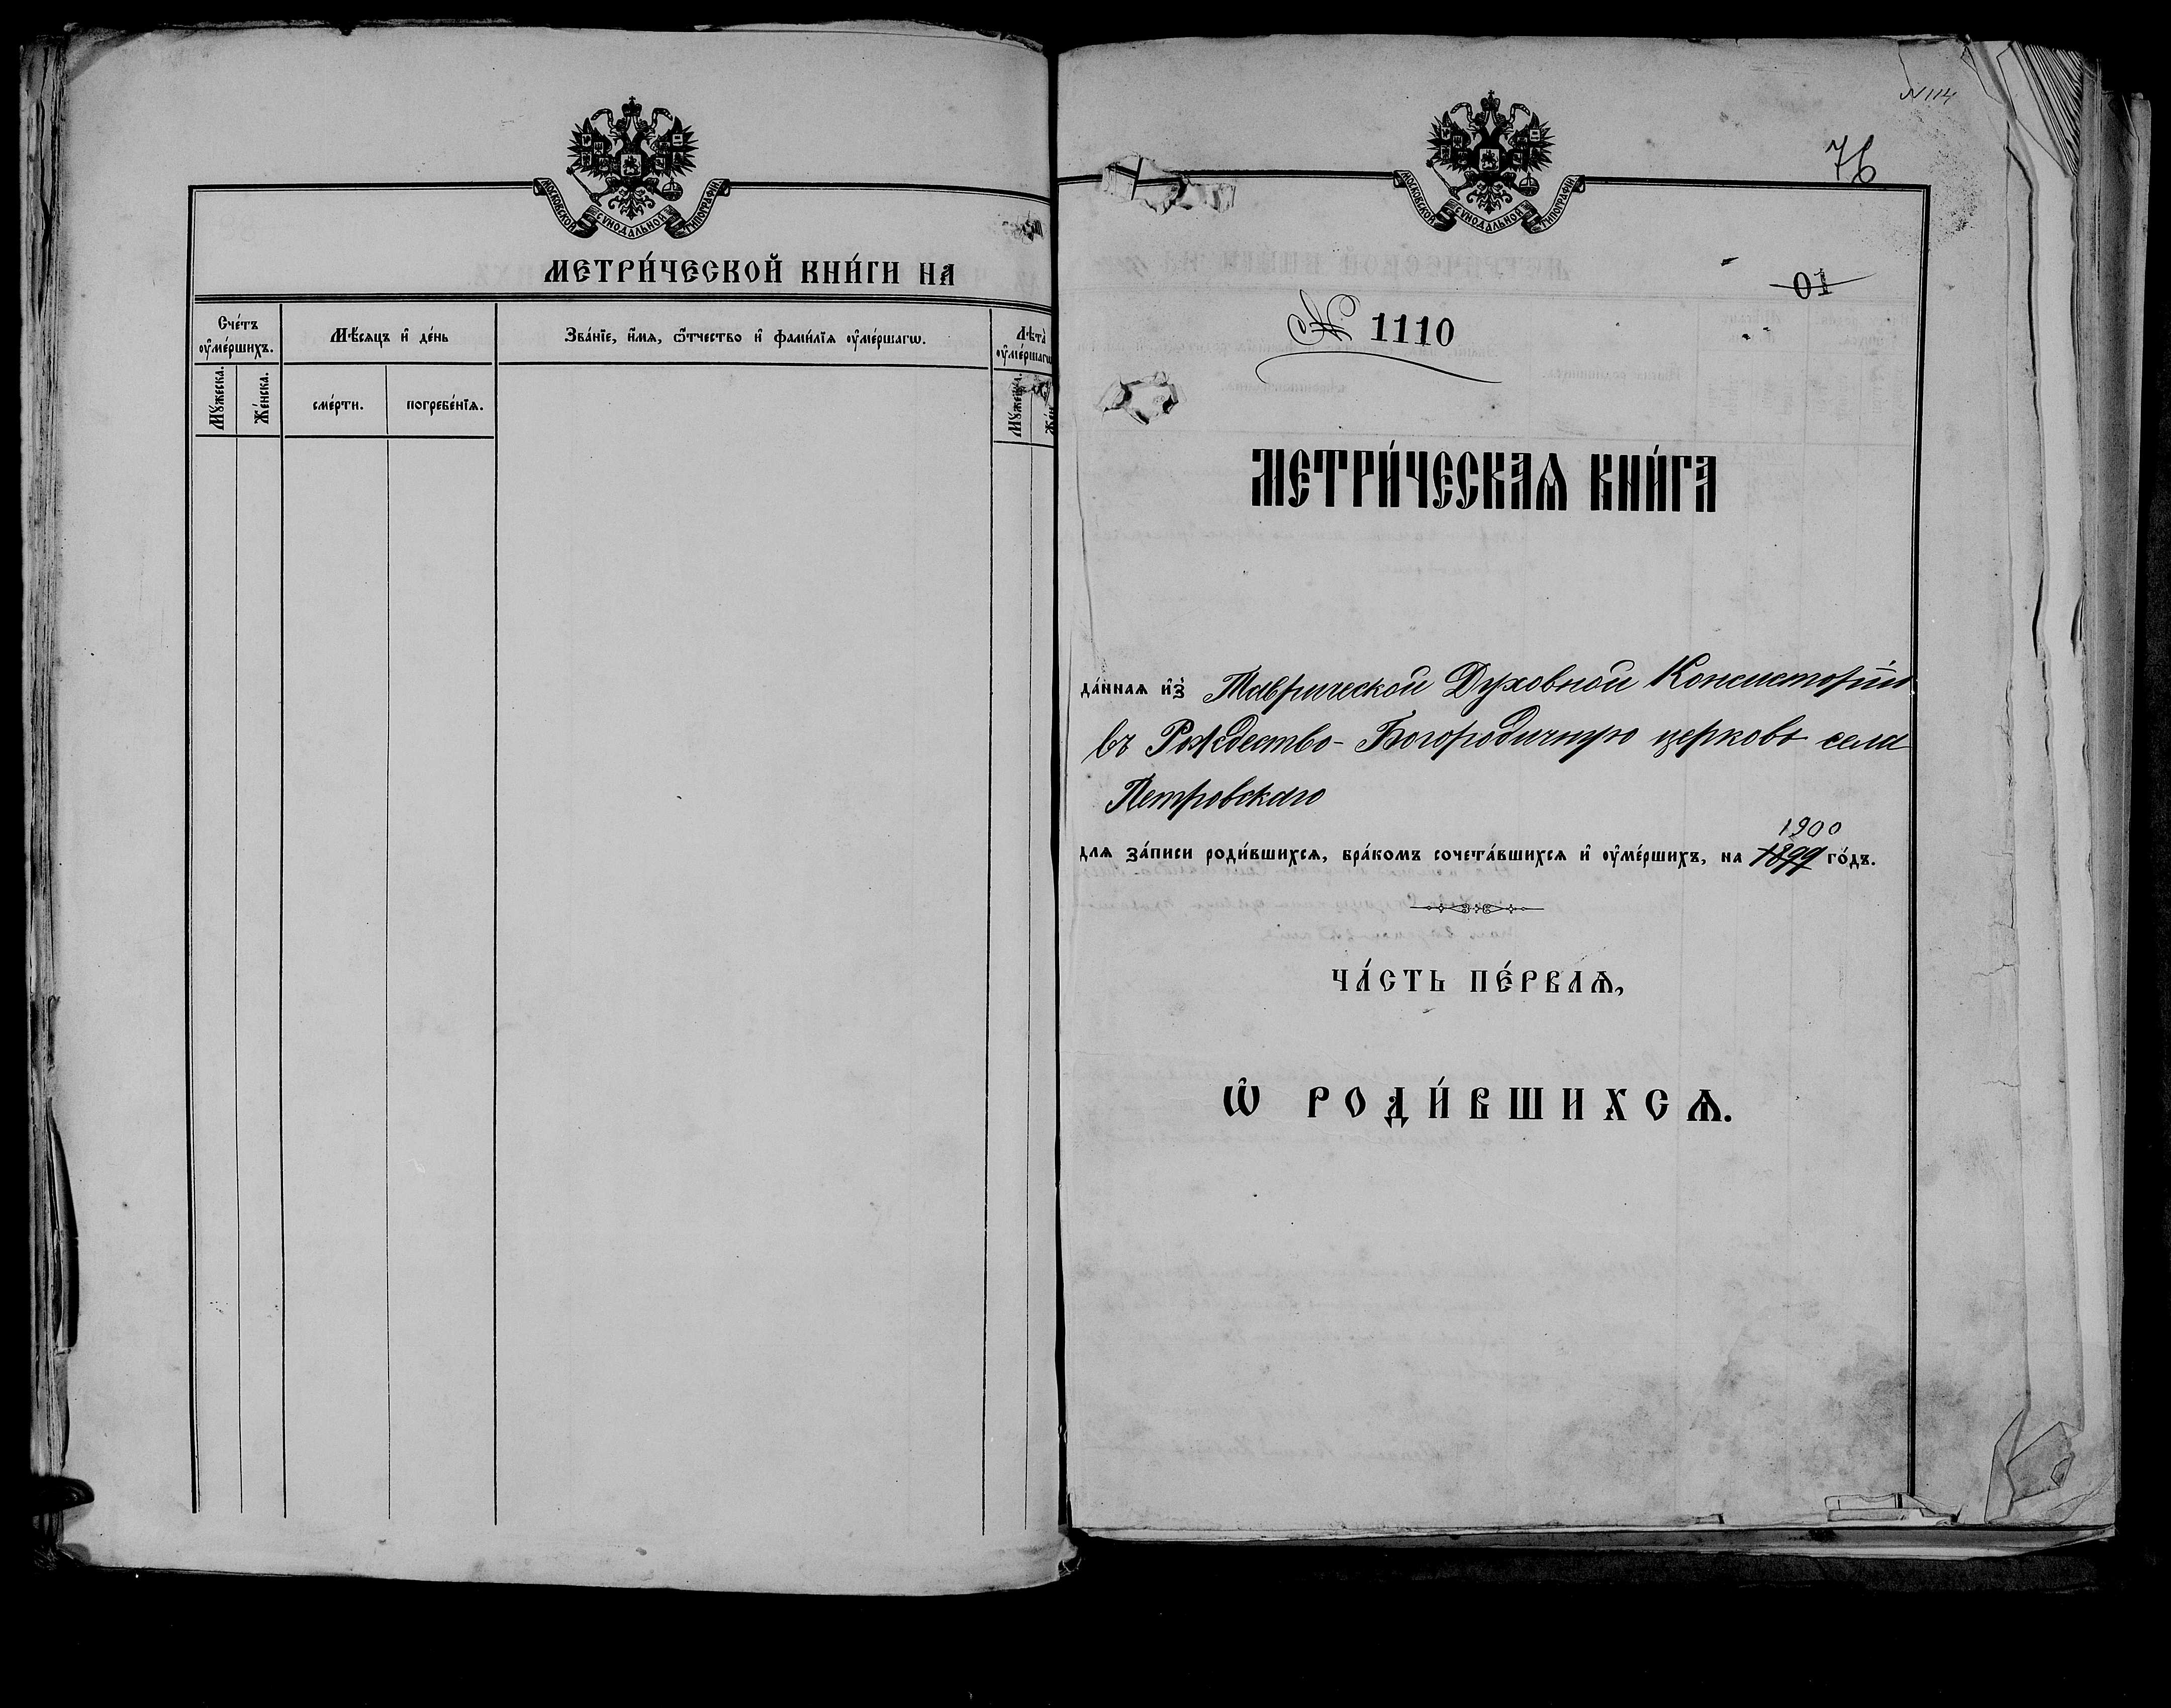 МОСКОВСКОЙ СѴНОДАЛЬНОЙ ТИПОГРАФІИ
МЕТРИ́ЧЕСКОЙ КНИ́ГИ НА
Сче́тъ оу҆ме́ршихъ.
Мѣ́сяцъ и҆ де́нь
Зва́нїе, и҆́мѧ, ѻ҆́тчество и҆ фами́лїѧ оу҆ме́ршагѡ.
Лѣта̀ оу҆ме́ршагѡ
Мꙋ́жеска.
Же́нска.
сме́рти.
погребе́нїѧ.
Мꙋ́жеска.
Же́н
N 114
76
МОСКОВСКОЙ СѴНОДАЛЬНОЙ ТИПОГРАФІИ
01
№ 1110
МЕТРИ́ЧЕСКАѦ КНИ́ГА
да́ннаѧ и҆з̾ Таврической Духовной Консисторіи
въ Рождество-Богородичную церковь села
Петровскаго
1900
длѧ за́писи роди́вшихсѧ, бра́комъ сочета́вшихсѧ и҆ оу҆ме́ршихъ, на 1899 го́дъ.
ЧА́СТЬ ПЕ́РВАѦ,
Ѽ РОДИ́ВШИХСѦ.